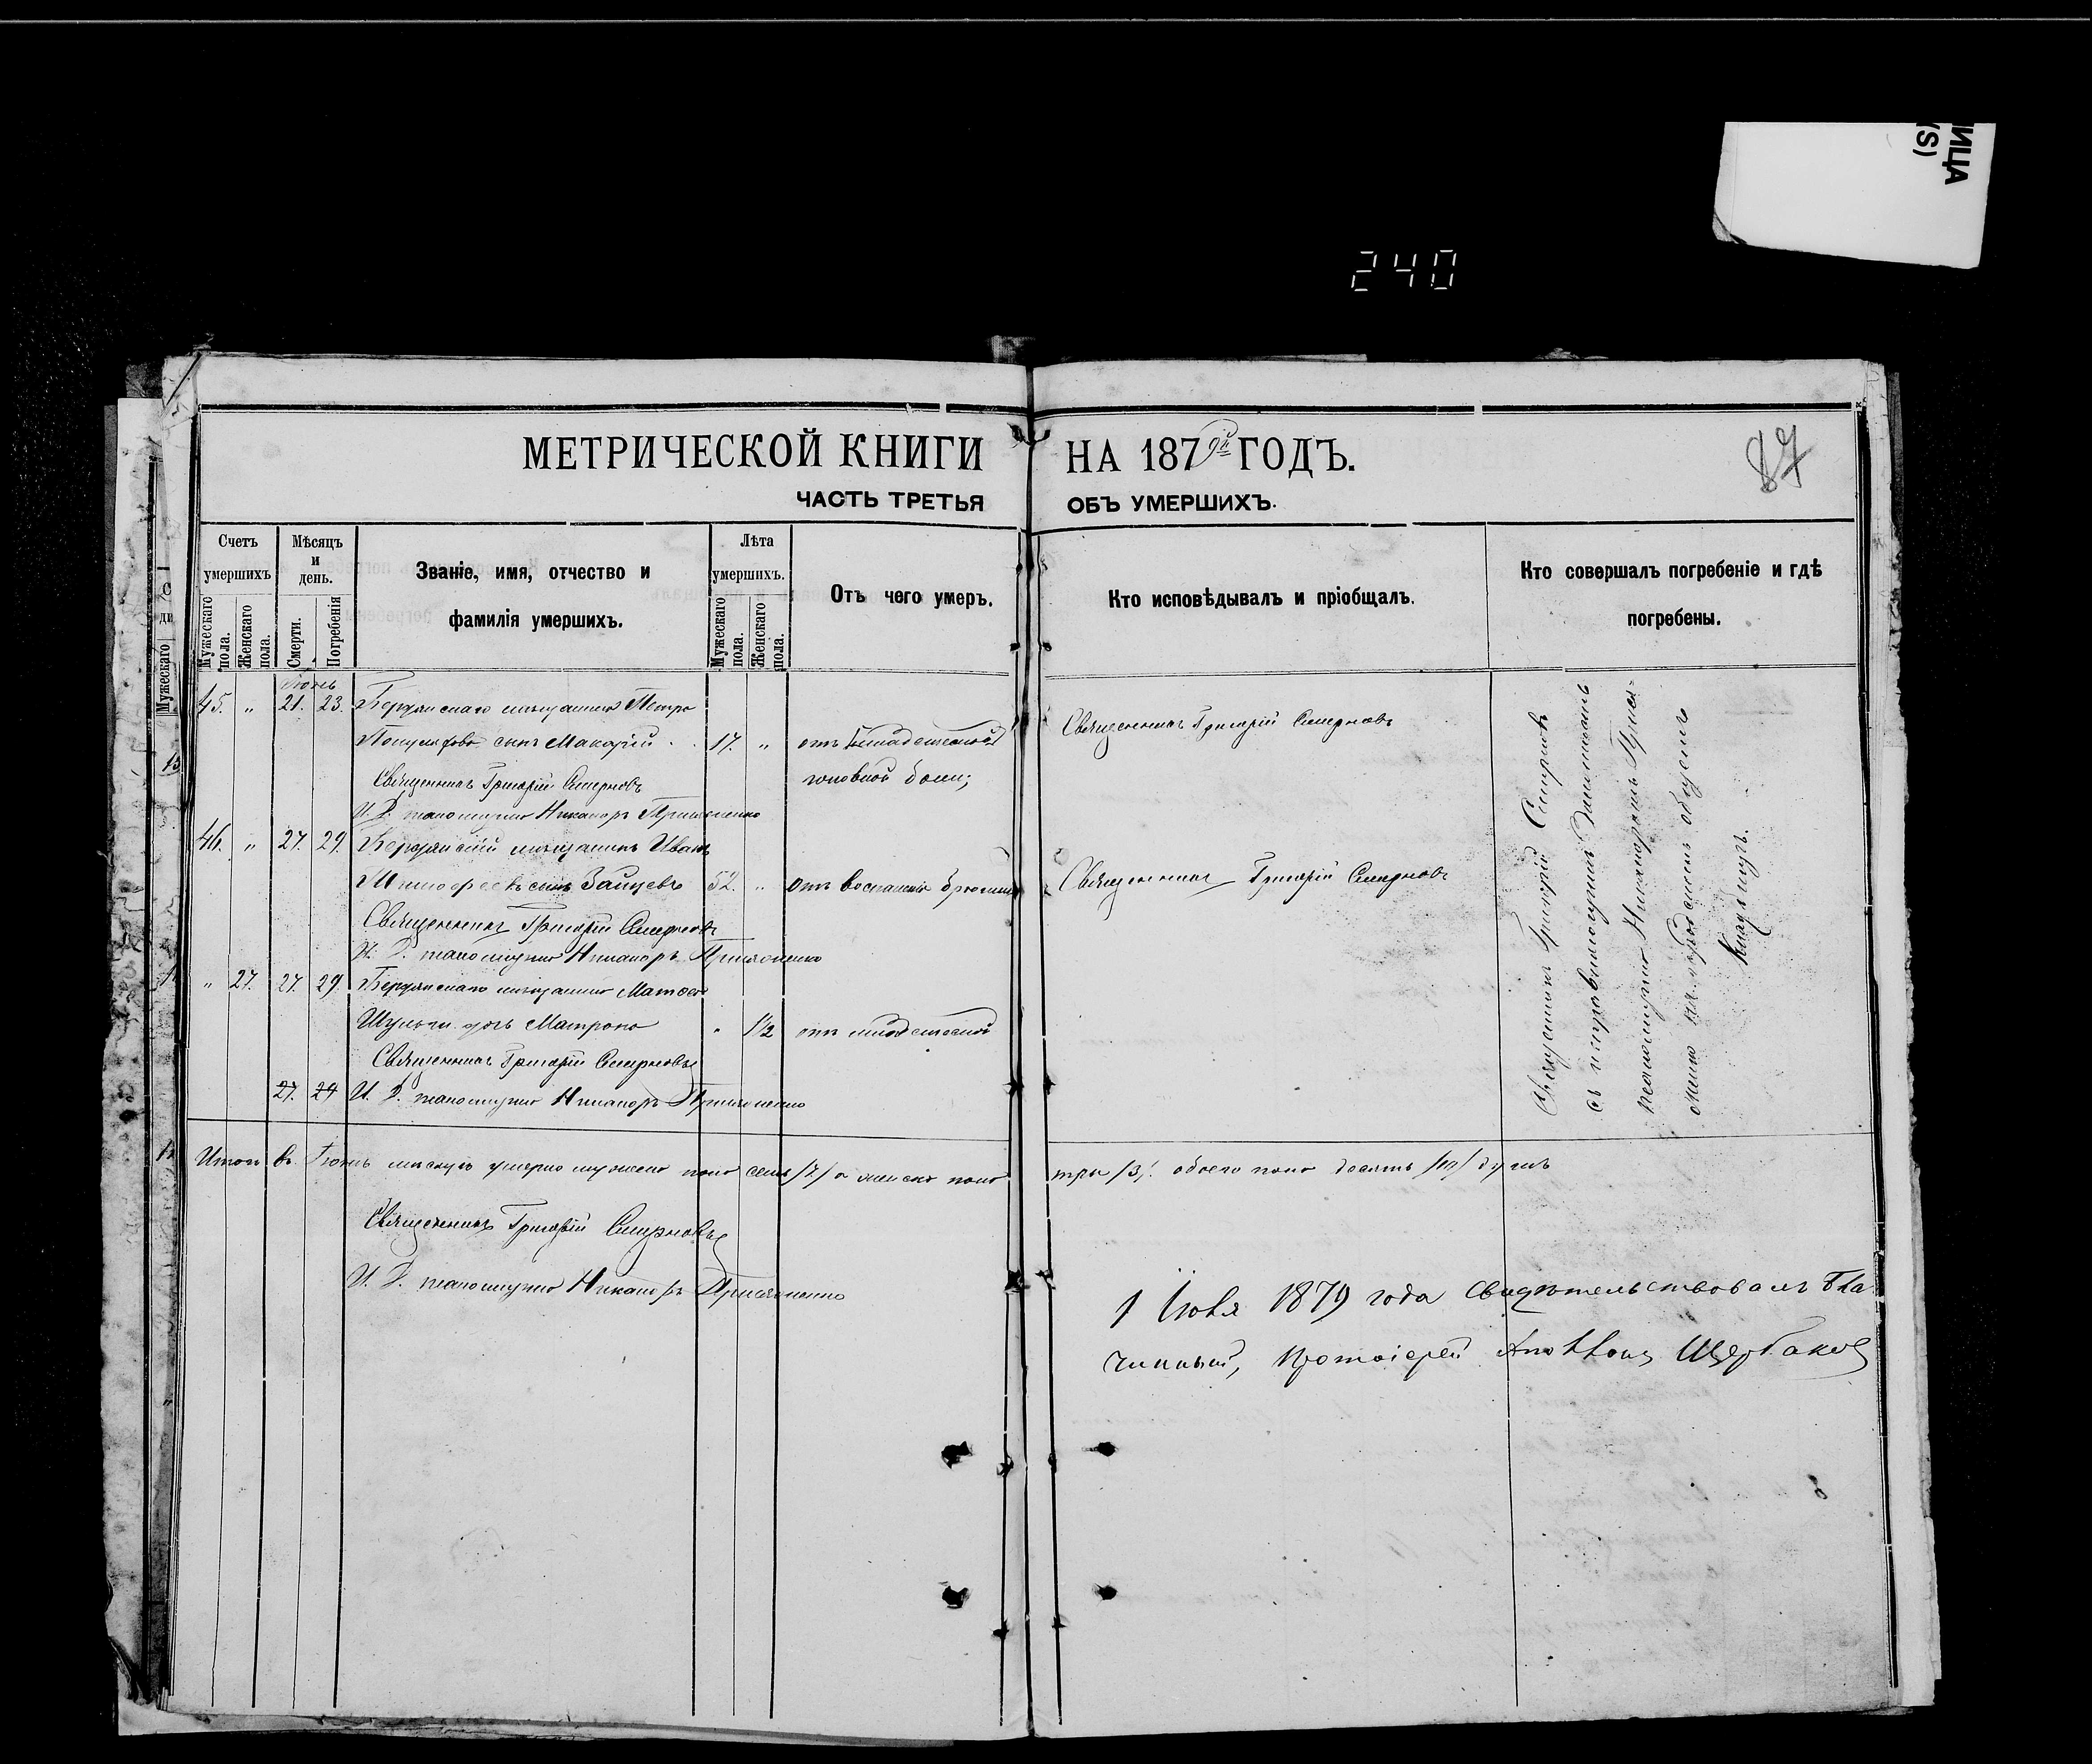 ИЦА
YS)
240
МЕТРИЧЕСКОЙ КНИГИ НА 1879й ГОДЪ.
87
ЧАСТЬ ТРЕТЬЯ ОБЪ УМЕРШИХЪ.
Счетъ умершихъ
Мужескаго пола.
Женскаго пола.
Мѣсяцъ и день.
Смерти.
Погребенія
Званіе, имя, отчество и
фамилія умершихъ.
Лѣта умершихъ.
Мужескаго пола.
Женскаго пола.
Отъ чего умеръ.
Кто исповѣдывалъ и пріобщалъ.
Кто совершалъ погребеніе и гдѣ
погребены.
Мужескаго
Іюнь
45. " 21. 23. Бердянскаго мѣщанина Петра
сынъ Макарій 17. " отъ
головной боли;
Священникъ Григорій Смирновъ
Священникъ Григорій Смирновъ
И. Д. псаломщика Никаноръ
46. " 27. 29. Бердянскій мѣщанинъ Иванъ
сынъ Зайцевъ 52. " отъ воспаленія брюшины
Священникъ Григорій Смирновъ
Священникъ Григорій Смирновъ
И. Д. псаломщика Никаноръ
" 27. 27. 29. Бердянскаго мѣщанина
дочь Матрона " 1½ отъ младенческой
Священникъ Григорій Смирновъ
27. 29 И. Д. псаломщика Никаноръ
Священникъ Григорій Смирновъ
съ
псаломщикомъ Никаноромъ
на городскомъ общемъ
Кладбищѣ.
Итого въ Іюнѣ мѣсяцѣ умерло мужеска пола семь /7/ а женска пола три /3/. обоего пола десять /10/ душъ
Священникъ Григорій Смирновъ
И. Д. псаломщика Никаноръ
1 Іюля 1879 года свидѣтельствовалъ Бла
чинный, протоіерей Щербаковъ